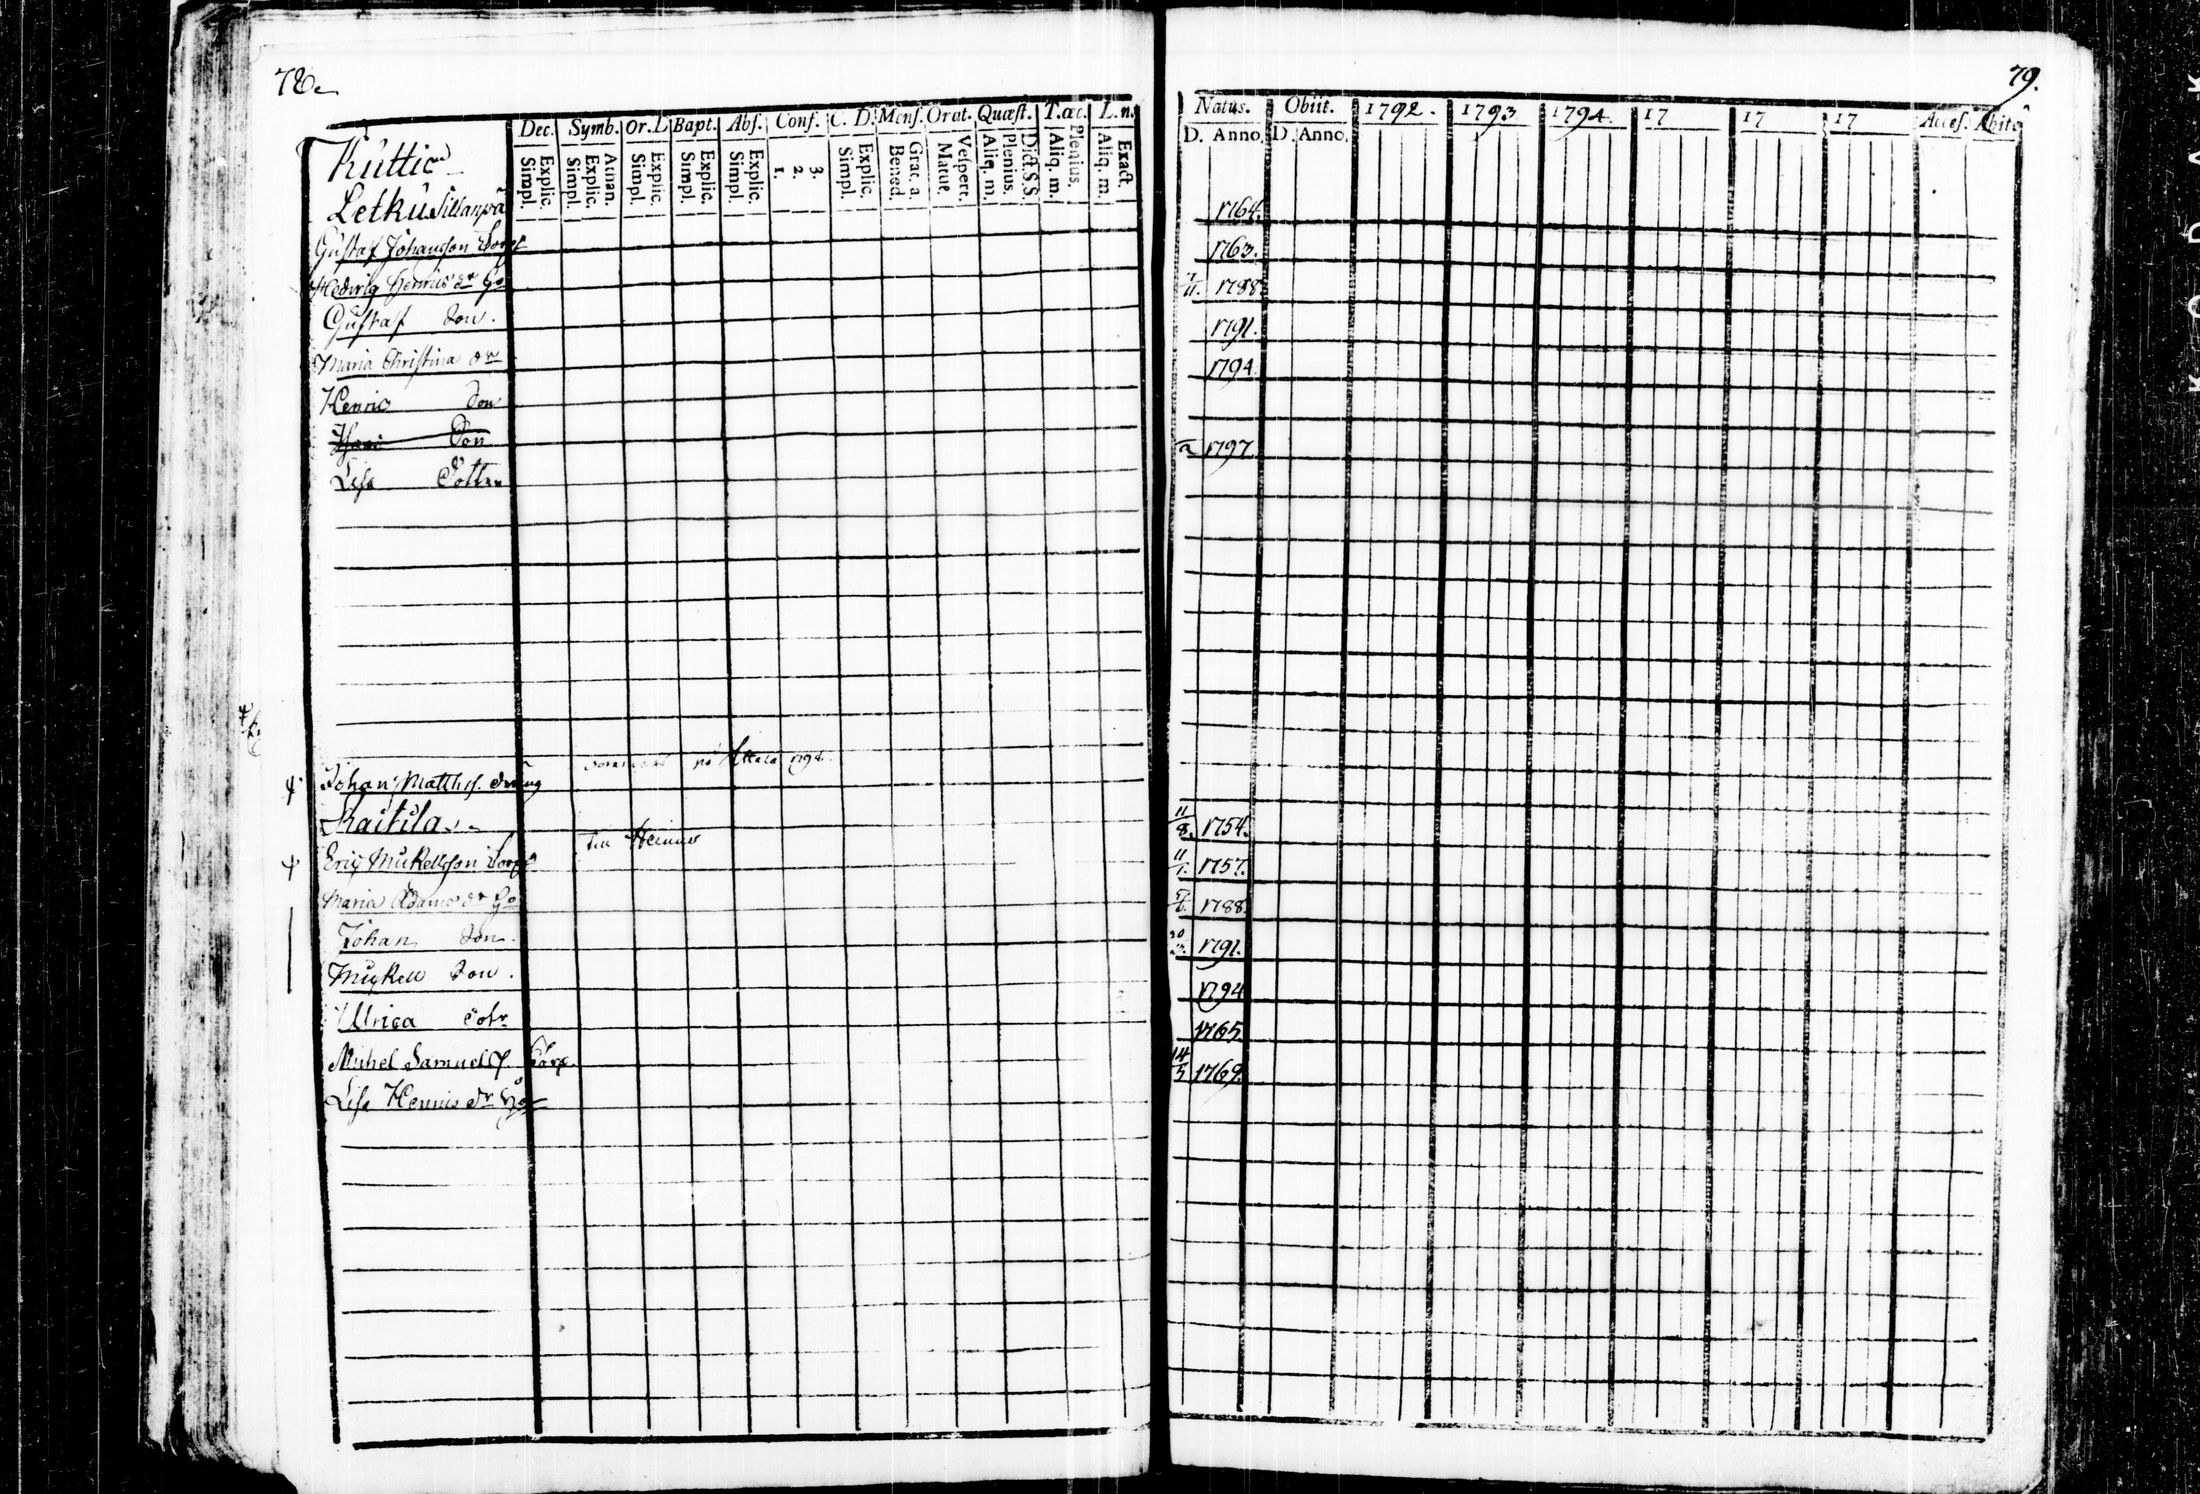 78
Dec. Symb. Or.D Bapt. Abs. Conf. C. D. Mens. Orat. Quæst. T.œc. L.n.
Explic. Simpl. Athan. Explic. Simpl. Explic. Simpl. Explic. Simpl. Explic. Simpl. 3. 2. 1. Explic. Simpl. Grat. a. Bened. Vespert. Matut. Dict. S.S. Plenius. Aliq. m. Plenius. Aliq. m. Exact. Aliq. m.
Kuttic
Letku Sillanpä
Gustaf Johansson Torp
Hedwig Henrics dr Ho
Gustaf Son.
Maria Christina dr
Henric Son
Son
Lisa Dotter
på 1794.
Johan Matthss. dräng
Kaitila
till
Eric Mickellsson Torp
Maria Adams dr Ho
Johan Son.
Mickell Son.
Ulrica dotr
Michel Samuelss. Torp.
Lisa Henrics dr Ho
79.
Natus. Obiit. 1792. 1793 1794 17 17 17 Acces. Abit.
D. Anno. D. Anno.
1764.
1763.
1/11. 1788
1791.
1794.
1797
11/8. 1754.
11/1. 1757.
1788.
1791.
1794
1765.
14/5 1769.
KODAK